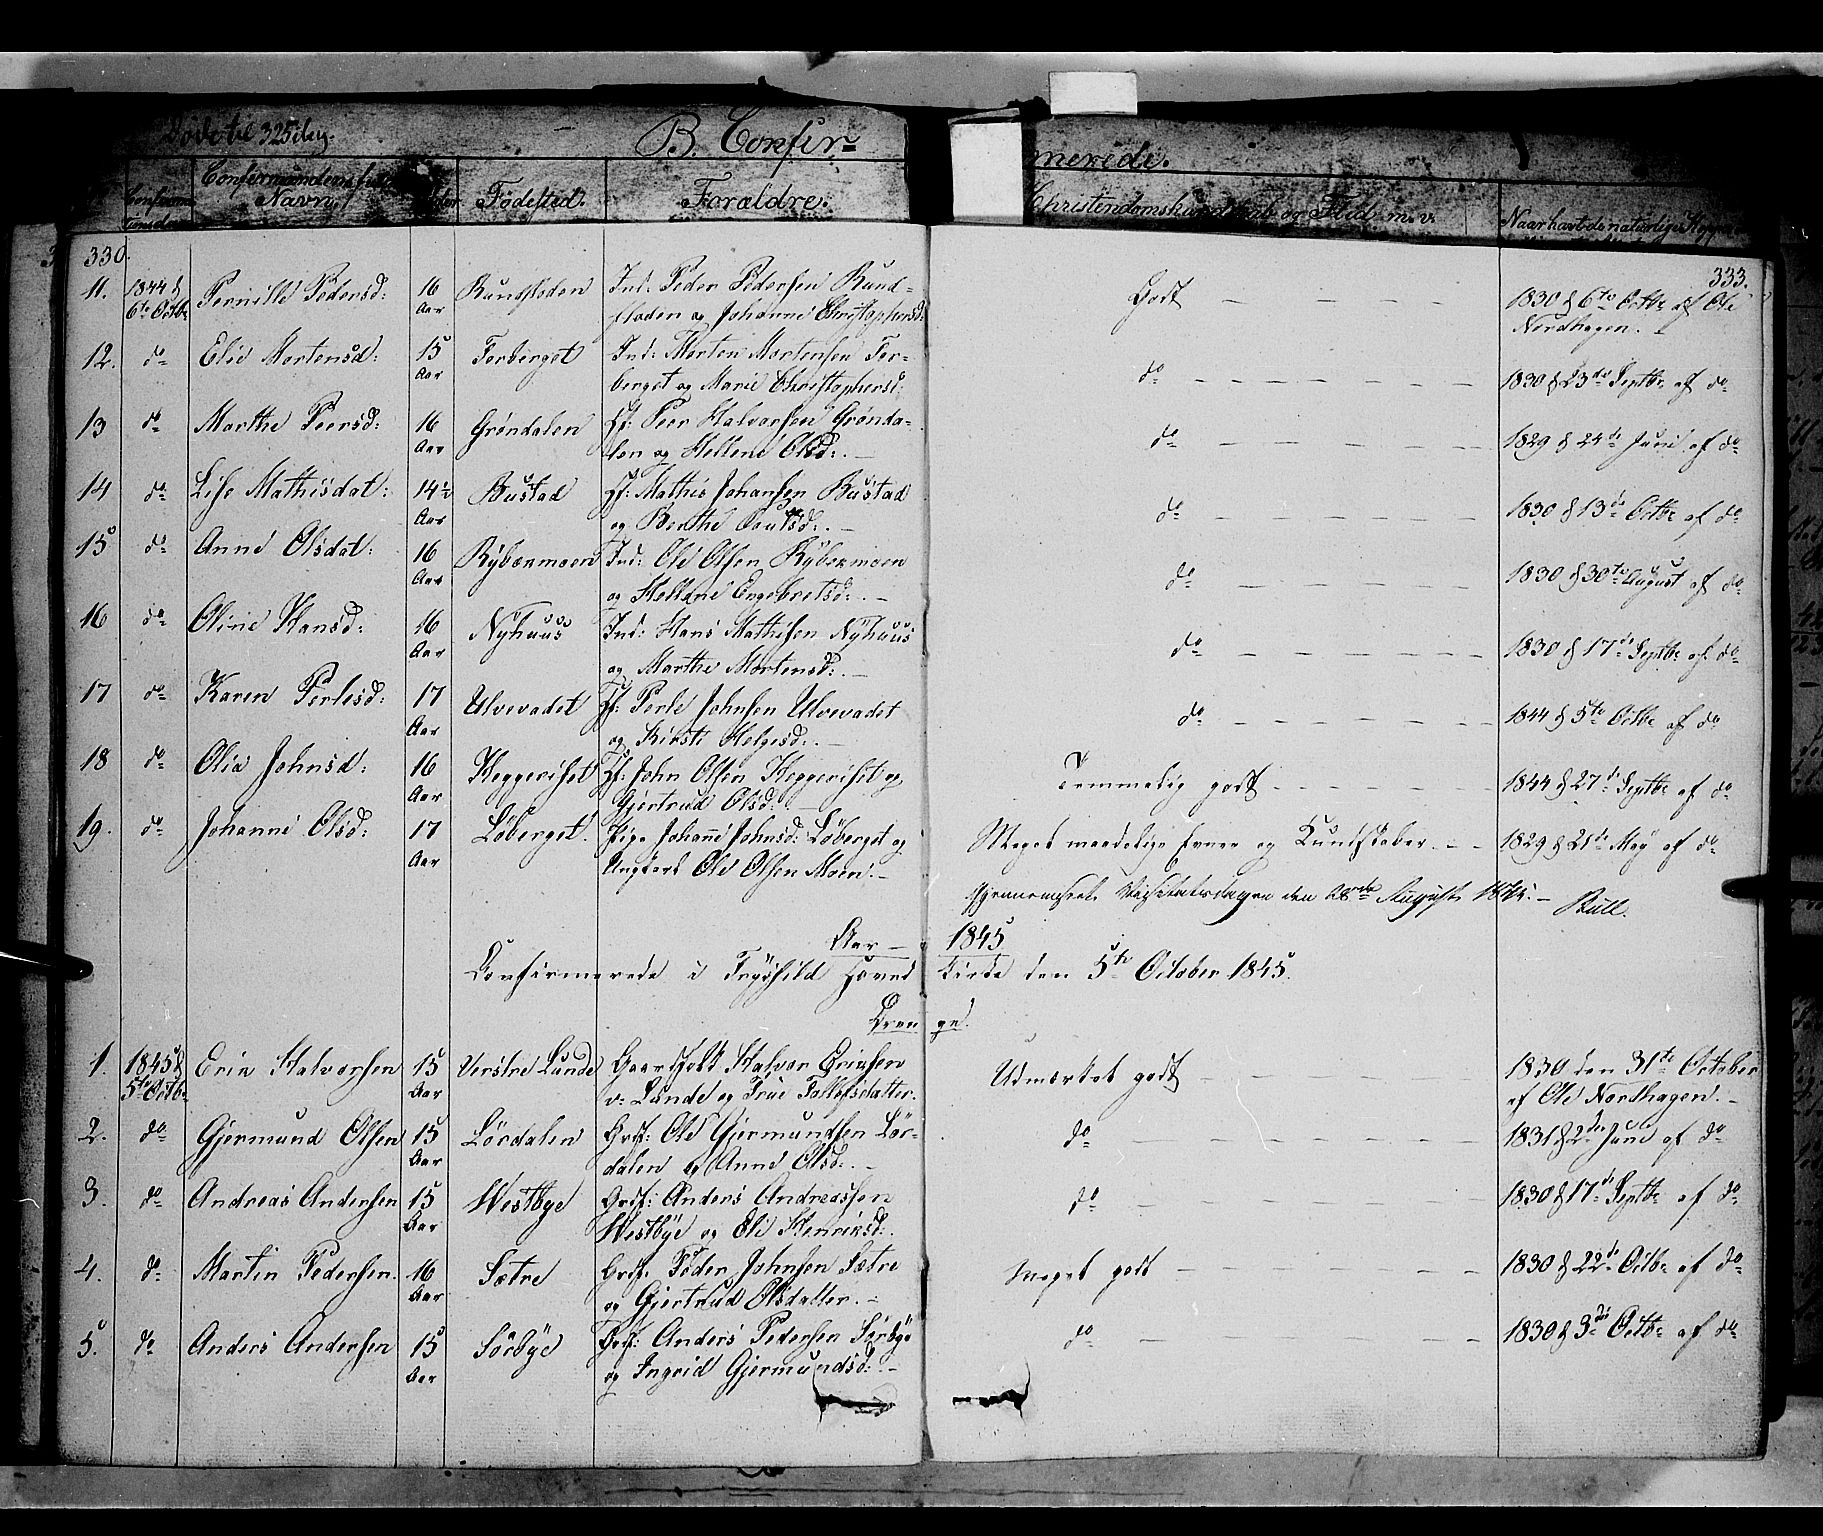 325
B. Confir-
merede.
Confirmandens fulde
Navn
Fødested.
Forældre.
Christendomskundskab og Flid m. v.
Naar havt de naturlige Kopper
330.
333.
11. 1844 d 6te Octbr Pernille Pedersd: 16 Aar Rundfloden Ind: Peder Pedersen Rund-
floden og Johanne Christophersd:
Godt — 1830 d 6te Octbr af Ole
Nordhagen. —
12. do Elie Mortensd: 15 Aar Forberget Ind: Morten Mortensen For-
berget og Marie Christophersd:
do — 1830 d 23de Septbr af do
13 do Marthe Peersd: 16 Aar Grøndalen Hf: Peer Halvorsen Grønda-
len og Hellene Olsd:. —
do — 1829 d 24de Juni af do
14 do Lise Mathisdat: 14½ Aar Bustad Hf: Mathis Johansen Bustad
og Berthe Poulsd:. —
do — 1830 d 13de Octbr af do
15 do Anne Olsdat: 16 Aar Rybermoen Ind: Ole Olsen Rybermoen
og Hellene Engebretsd:. —
do — 1830 d 30te August af do
16 do Oline Hansd: 16 Aar Nyhuus Ind: Hans Mathisen Nyhuus
og Marthe Mortensd:. —
do — 1830 d 17de Septbr af do
17 do Karen Perlesd: 17 Aar Ulvevadet Hf: Perle Johnsen Ulvevadet
og Kirsti Helgesd:. —
do — 1844 d 5te Octbr af do
18 do Olia Johnsd: 16 Aar Heggeriset Hf: John Olsen Heggeriset og
Gjertrud Olsd: —
Temmelig godt — 1844 d 27de Septbr af do
19. do Johanne Olsd: 17 Aar Løberget Pige Johanne Johnsd: Løberget og
Ungkarl Ole Olsen Moen. —
Meget maadelige Evner og Kundskaber. — 1829 d 21de May af do
Gjennemseet Visitatsdagen den August —
Bull.
Aar — 1845
Confirmerede i Trysild Hoved Kirke den 5te October 1845.
Drenge.
1. 1845 d 5te Octbr Eric Halvorsen 15 Aar Verstre Lunde Gaardfolk Halvor Ericsen
v: Lunde og Frue Tollefsdatter.
Udmærket godt — 1830 den 31te October
af Ole Nordhagen. —
2. do Gjermund Olsen 15 Aar Lørdalen Grdf: Ole Gjermundsen Lør-
dalen og Anne Olsd:. —
do — 1831 d 2den Juni af do
3. do Andreas Andersen 15 Aar Westbye Grdf: Anders Andreassen
Westbye og Eli Henriksd:.
do — 1830 d 17de Septbr af do
4. do Martin Pedersen. 16 Aar Sætre Grdf: Peder Johnsen Sætre
og Gjertrud Olsdatter. —
Meget godt — 1830 d 22de Octbr af do
5. do Anders Andersen 15 Aar Sørbye Grdf: Anders Pedersen Sørbye
og Ingrid Gjermundsd:. —
do — 1830 d 3die Octbr af do